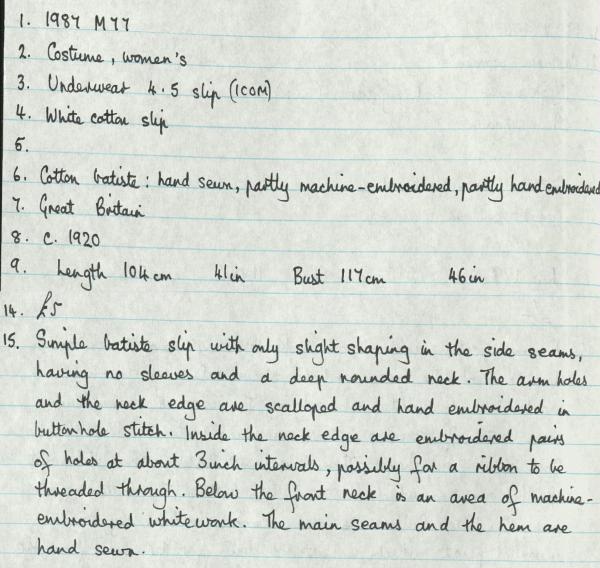 1. 1987 M77
2. Costume, women's
3. Underwear 4.5 slip (ICOM)
4. White cotton slip
5.
6. Cotton batiste: hand sewn, partly machine-embroidered, partly hand embroidered
7. Great Britain
8. c. 1920
9. Length 104cm 41in Bust 117cm 46in
14. £5
15. Simple batiste slip with only slight shaping in the side seams,
having no sleeves and a deep rounded neck. The arm holes
and the neck edge are scalloped and hand embroidered in
buttonhole stitch. Inside the neck edge are embroidered pairs
of holes at about 3inch intervals, possibly for a ribbon to be
threaded through. Below the front neck is an area of machine-
embroidered whitework. The main seams and the hem are
hand sewn.